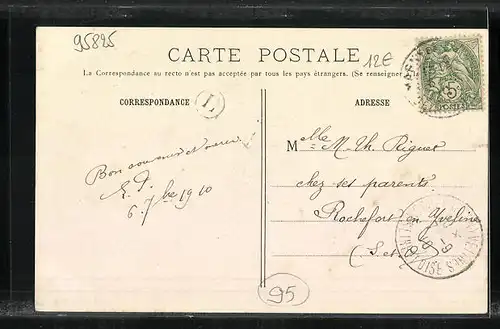 95825
CARTE POSTALE
12€
La Correspondance au recto n'est pas acceptée par tous les pays étrangers. (Se renseigner
CORRESPONDANCE
L
ADRESSE
5
POSTES
Melle M. Th. Riguet
Bon souvenir et merci
chez ses parents
6. 7bre 1910
Rochefort en Yveline
(S. et
95